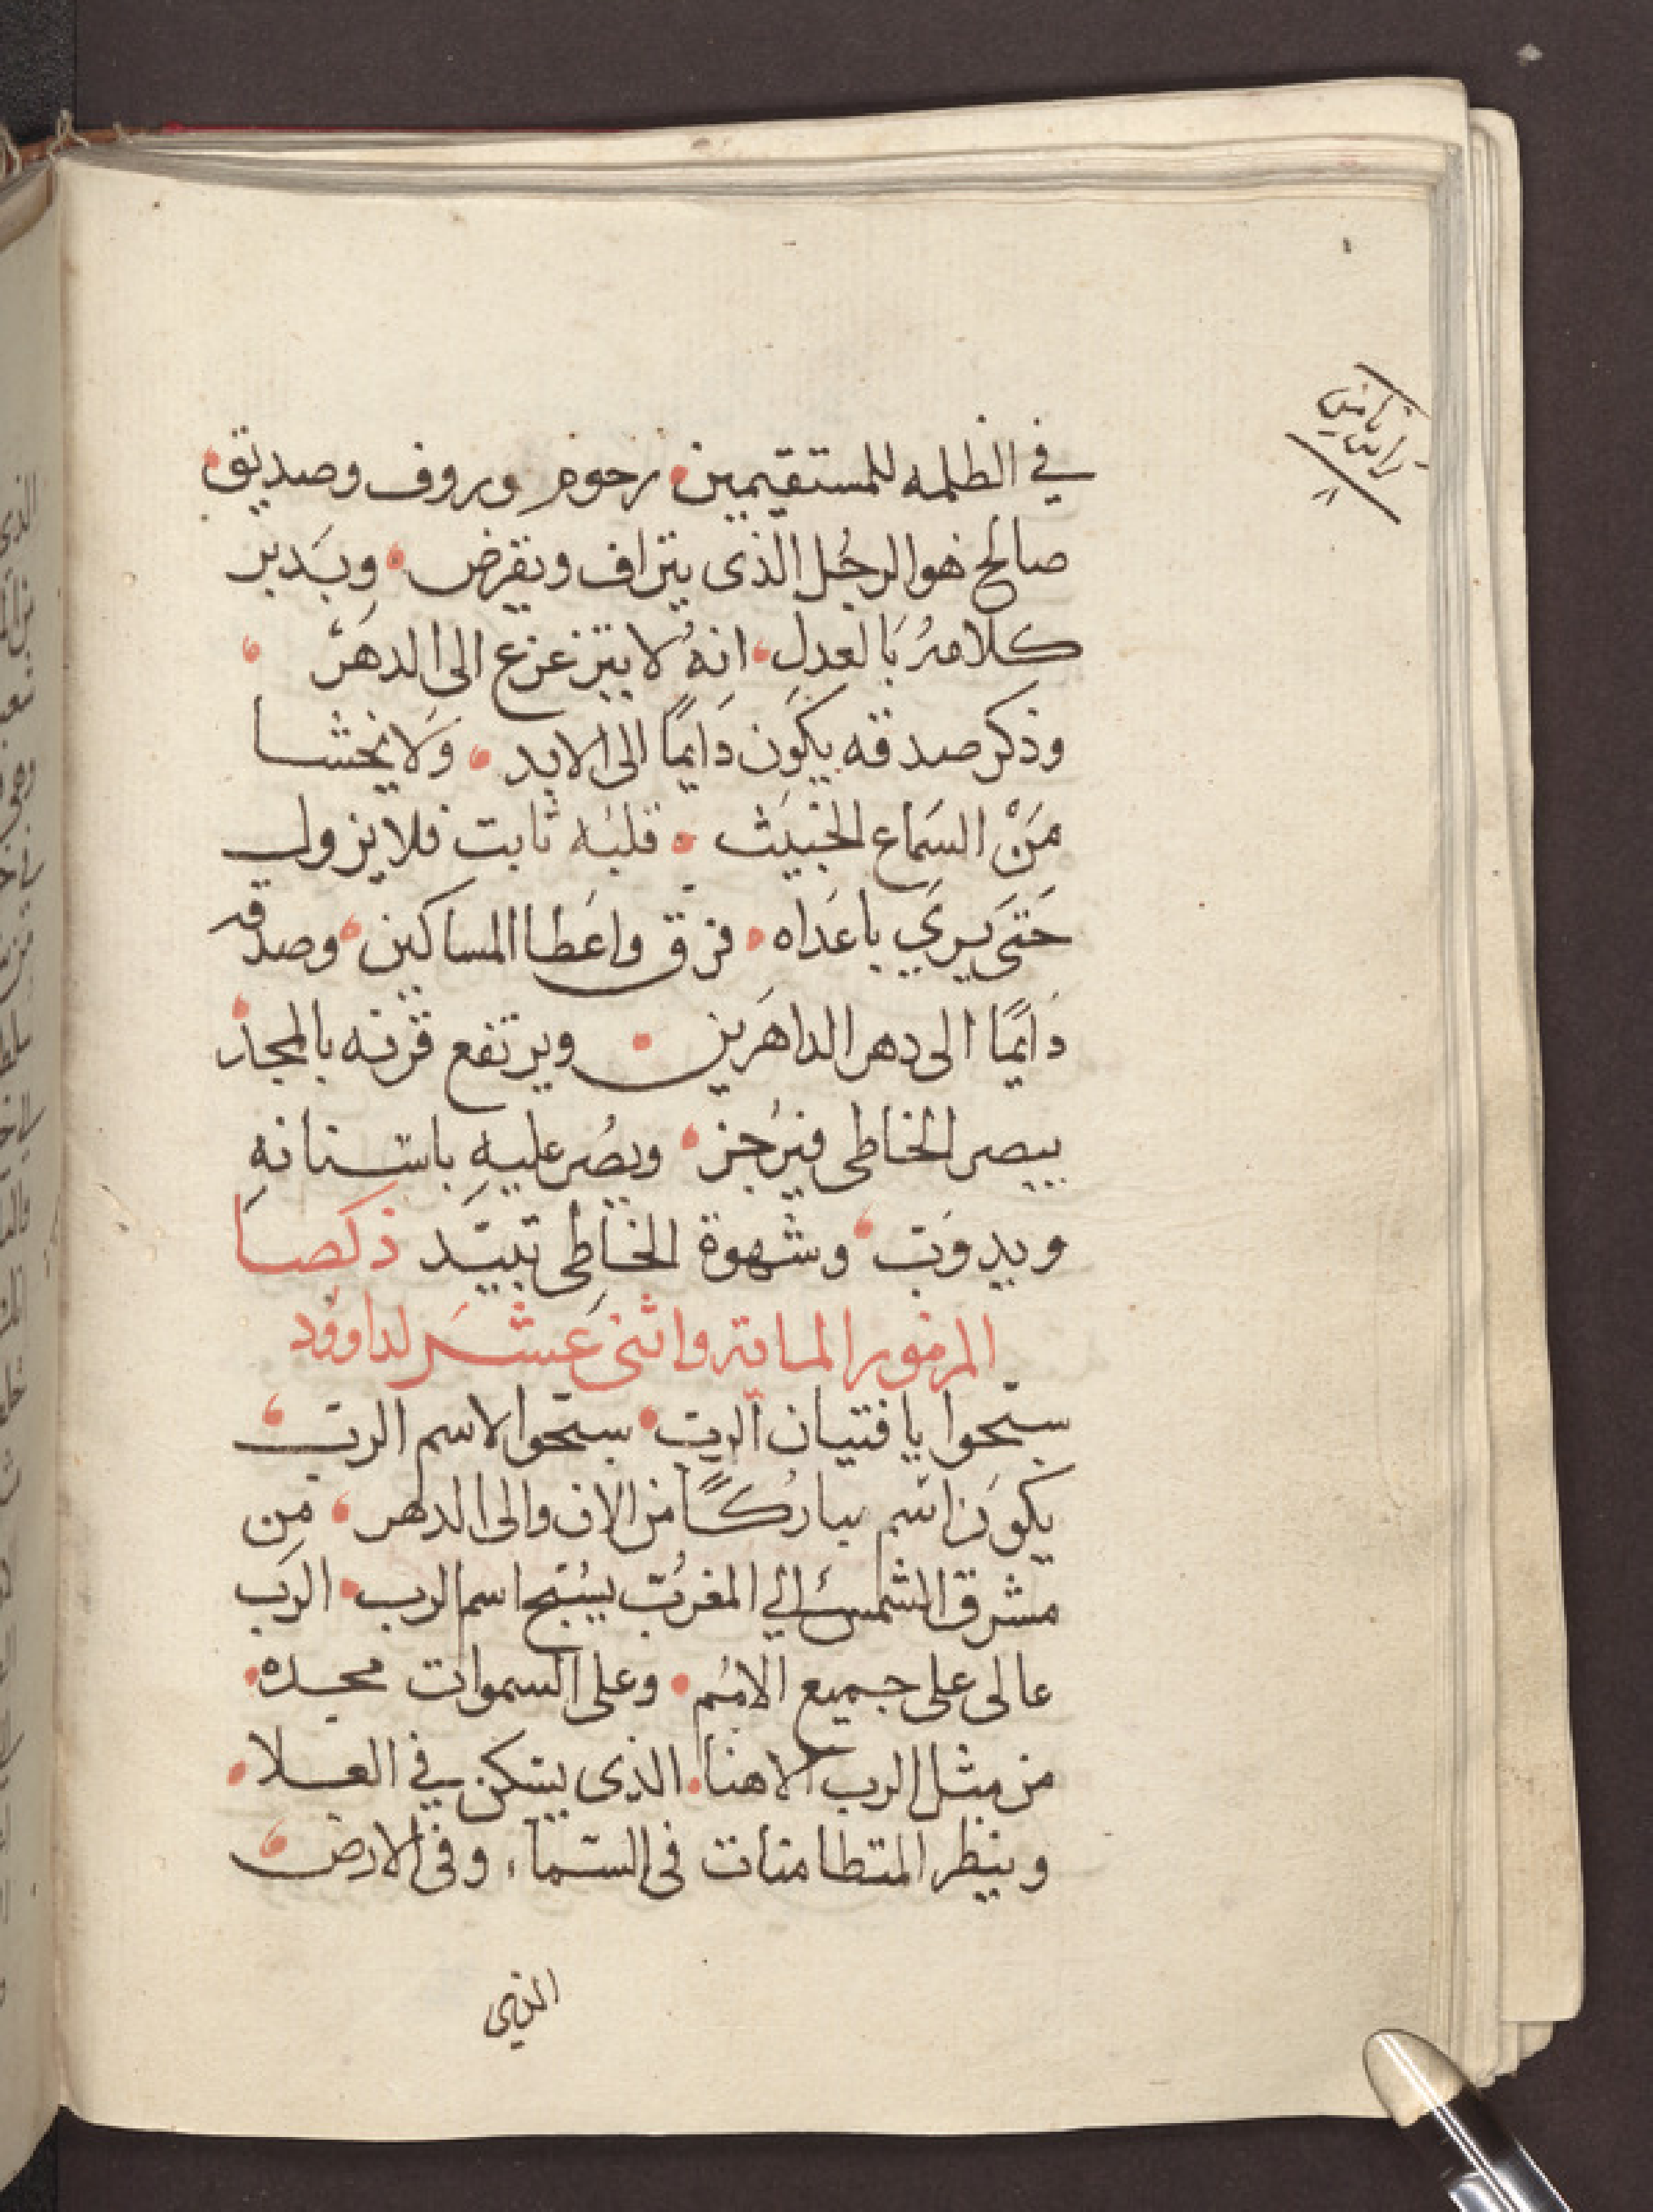 في الظلمه للمستقيمين رحوم وروف وصديق
صالح هو الرجُل الذى يتراف ويقرض وبَدبر
كلامهُ بَالعدلِ انهُ لا يتزعزع الى الدهَرْ
وذكر صدقه يكَون دَايمًا الى الابد وَلا يخشا
مَنْ السَماع الخبيَث قلبَه ثابت فلا يزول
حَتىَ يريَ باعَداه فرق واعَطا المساكين وصدقه
دَايمًا الى دهر الداهَرين ويرتفع قرنه بالمجد
يبصر الخاطى فيرُجز ويصُر عليهِ باسنانهِ
ويدوَب وشهوة الخاطى تبيَد ذكصا
المزمور الماية واثنى عَشَر لداوود
سبَحوا يا فتيان الرب سبحوا لاسم الرب
يكوَن اسم مباركًا من الان والى الدهر مِن
مشرق الشمس الي المغرب يسُبح اسم الرب الرَب
عالى على جميع الامُم وعلى السموات مجده
من مثل الرب الاهنا الذى يسَكن في العلا
وينظر المتطامنات فى السَماء وفى الارض
الذى